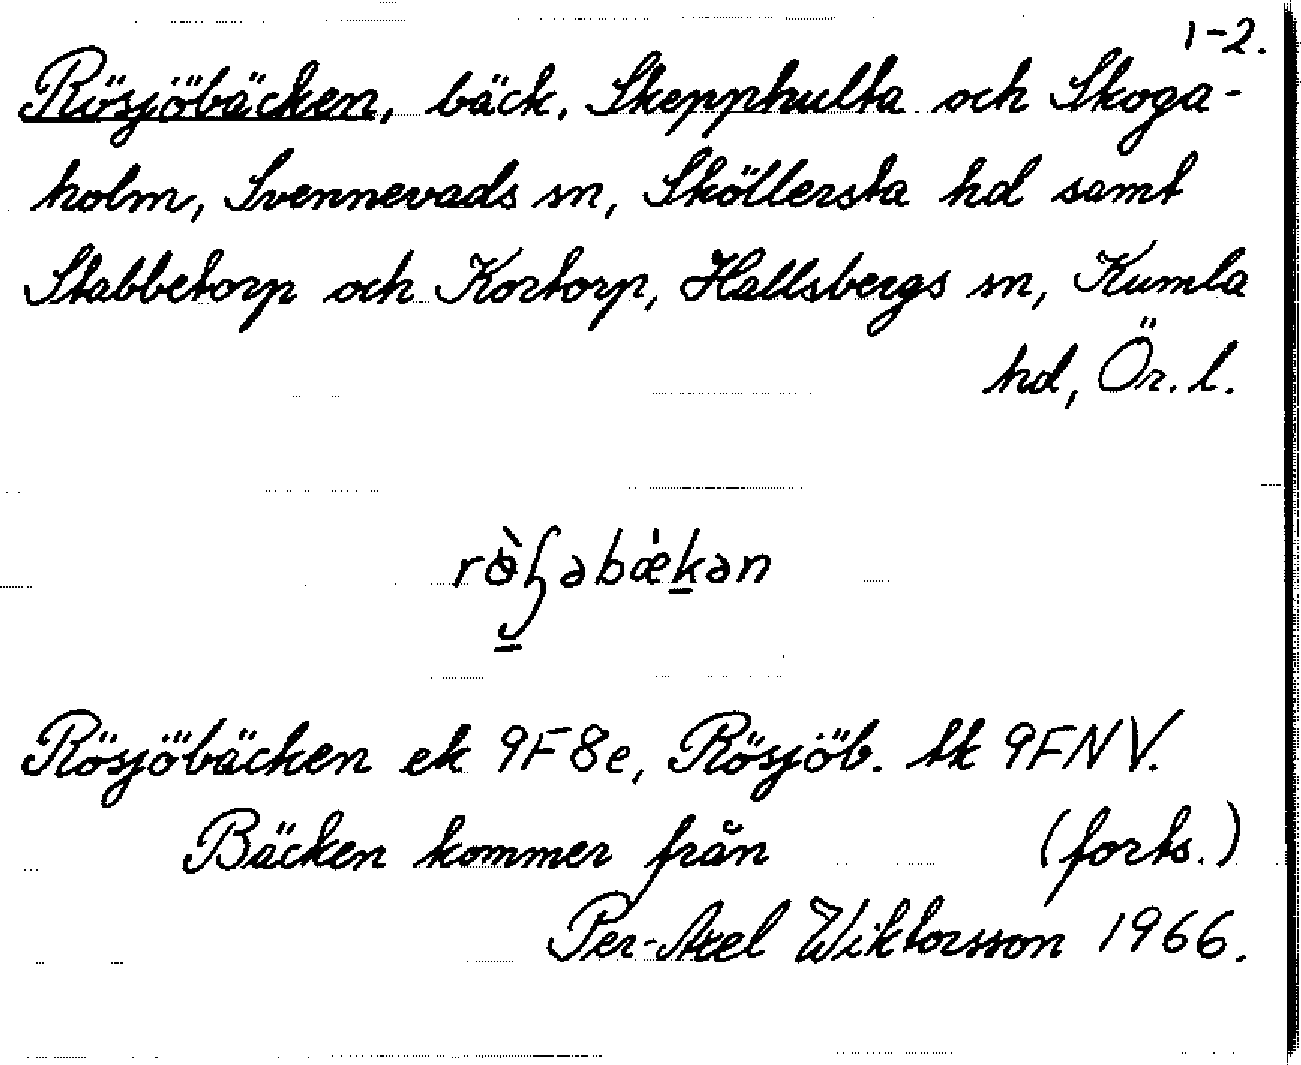 1-2.
Rösjöbäcken, bäck. Skepphulta och Skoga-
holm, Svennevads sn, Sköllersta hd samt
Stabbetorp och Kortorp, Hallsbergs sn, Kumla
hd, Ör. l.
Rösjöbäcken ek 9F8e, Rösjöb. tk 9FNV.
Bäcken kommer från (forts.)
Per-Axel Wiktorsson 1966.